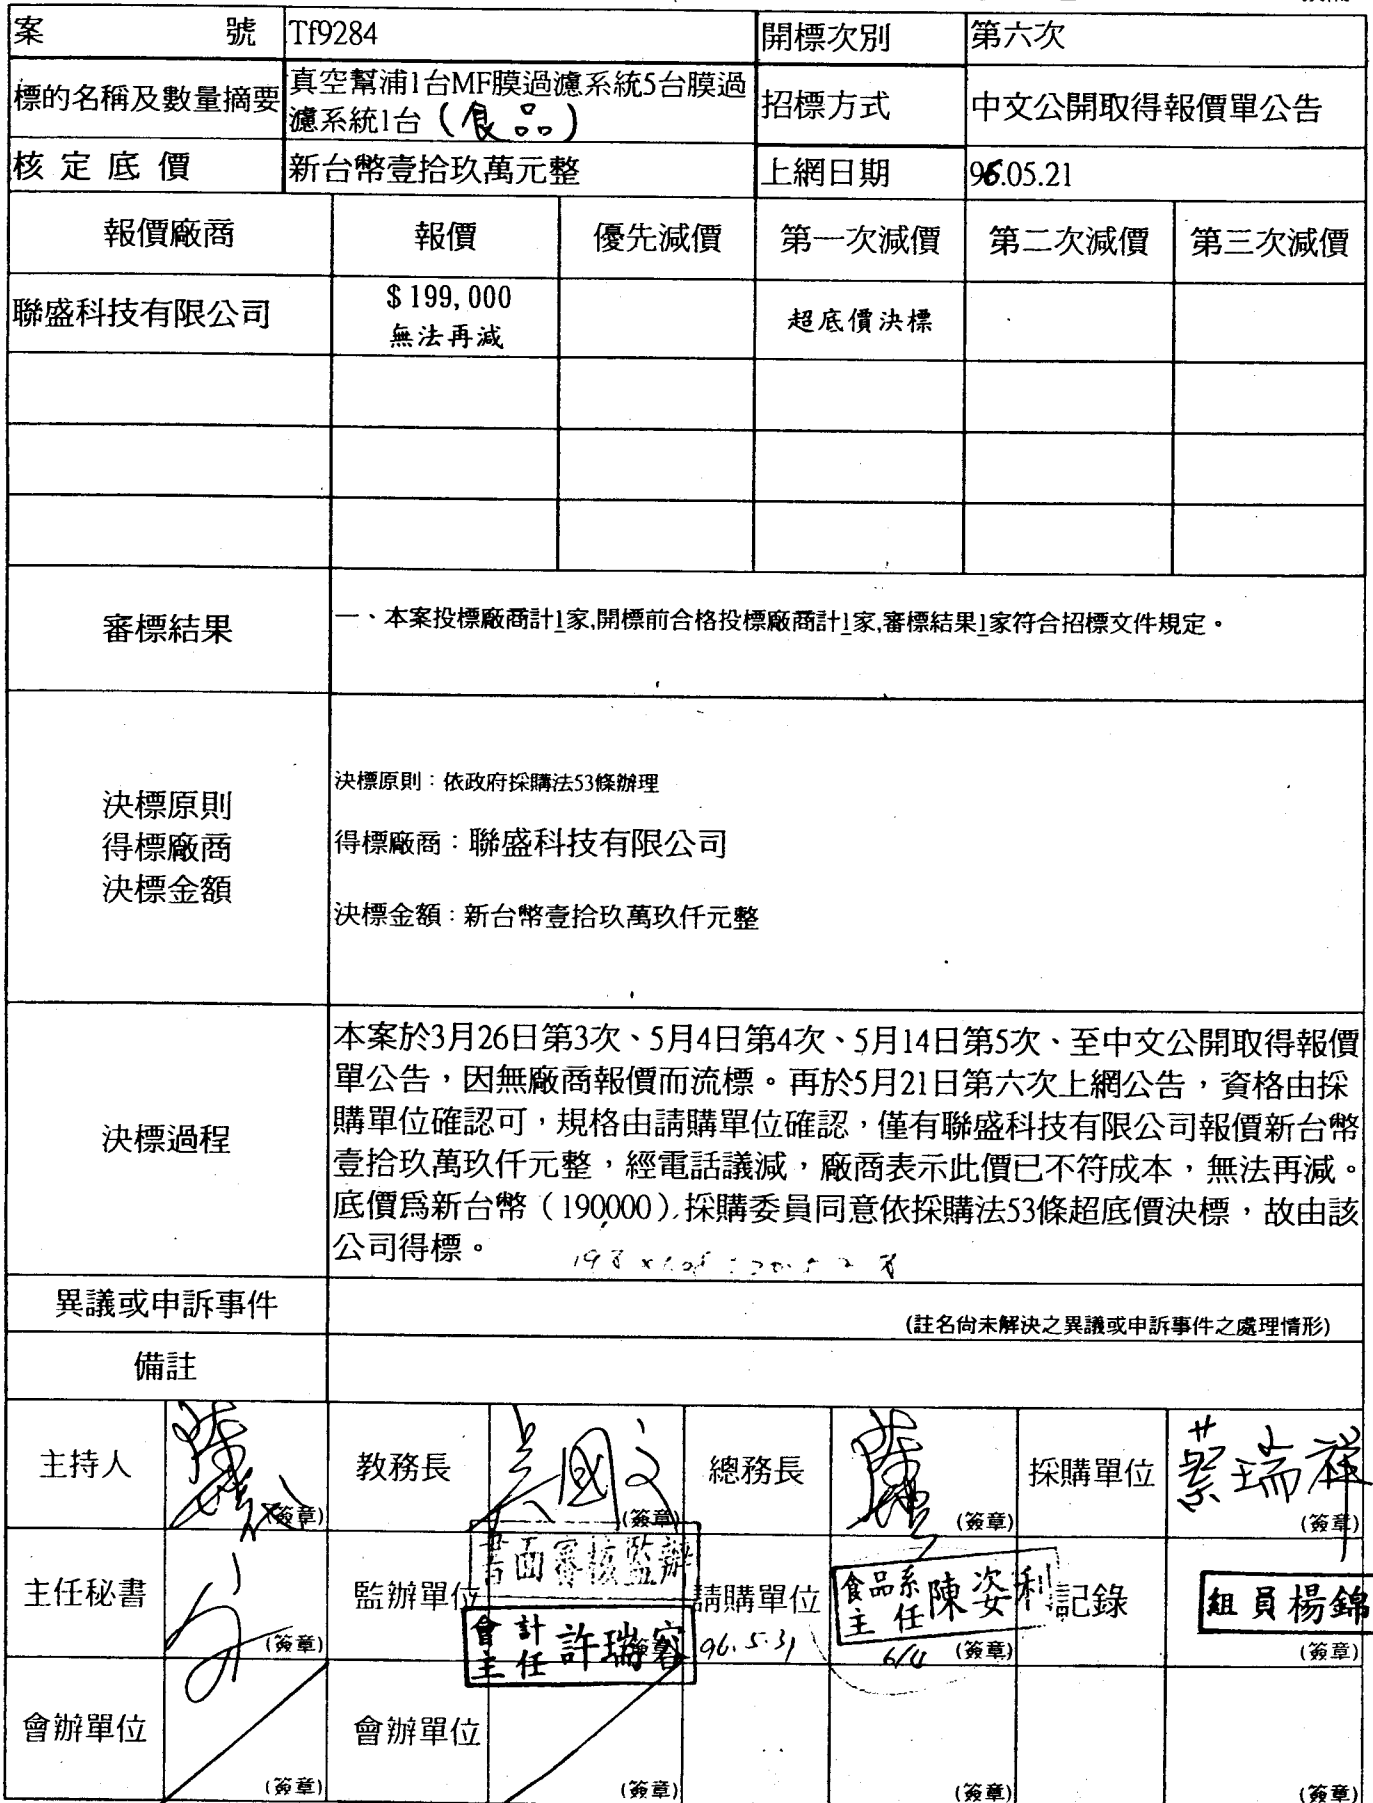 案 號 Tf9284 開標次別 第六次
標的名稱及數量摘要 真空幫浦1台MF膜過濾系統5台膜過
濾系統1台(食品) 招標方式 中文公開取得報價單公告
核定底價 新台幣壹拾玖萬元整 上網日期 96.05.21
報價廠商 報價 優先減價 第一次減價 第二次減價 第三次減價
聯盛科技有限公司 $199,000 超底價決標
無法再減
審標結果 一、本案投標廠商計1家,開標前合格投標廠商計1家,審標結果1家符合招標文件規定。
決標原則
得標廠商
決標金額
決標原則：依政府採購法53條辦理
得標廠商：聯盛科技有限公司
決標金額：新台幣壹拾玖萬玖仟元整
決標過程
本案於3月26日第3次、5月4日第4次、5月14日第5次、至中文公開取得報價
單公告，因無廠商報價而流標。再於5月21日第六次上網公告，資格由採
購單位確認可，規格由請購單位確認，僅有聯盛科技有限公司報價新台幣
壹拾玖萬玖仟元整，經電話議減，廠商表示此價已不符成本，無法再減。
底價爲新台幣（190000）,採購委員同意依採購法53條超底價決標，故由該
公司得標。
異議或申訴事件 (註名尚未解決之異議或申訴事件之處理情形)
備註
主持人 (簽章) 教務長 (簽章) 總務長 (簽章) 採購單位 蔡瑞祥 (簽章)
主任秘書 (簽章) 監辦單位 書面審核監辦
會計主任 許瑞容 96.5.31
請購單位 食品系主任 陳姿利 6/4 (簽章) 記錄 組員楊錦 (簽章)
會辦單位 (簽章) 會辦單位 (簽章) (簽章) (簽章)